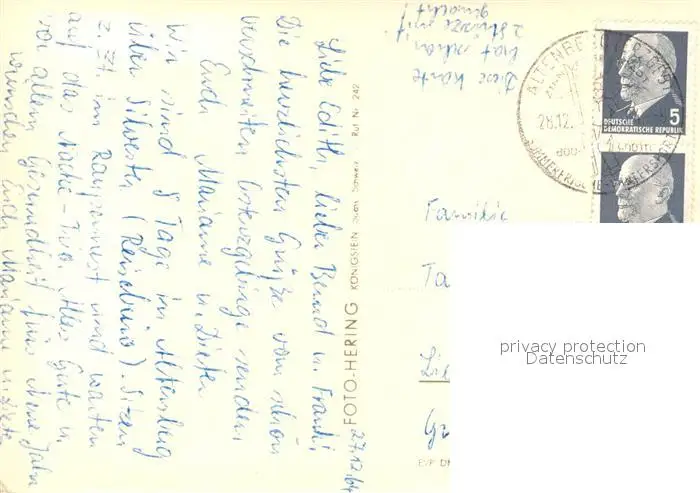 27.12.64
Liebe Edith, lieber Bernd u. Frank!
Die herzlichsten Grüße vom schön
verschneiten Osterzgebirge senden
Euch Marianne u. Dieter
Wir sind 8 Tage in Altenberg
über Silvester (Reisebüro). Sitzen
z. Zt. im Raupennest und warten
auf das Nacht-Trio. Alles Gute u.
vor allem Gesundheit fürs Neue Jahr
wünschen Euch Marianne u. Dieter
Diese Karte
hat schon
gemacht!
FOTO-HERING KÖNIGSTEIN Sächs. Schweiz Ruf Nr. 242
ALTENBERG
28.12.
SOMMERFRISCHE
5
DEUTSCHE
DEMOKRATISCHE REPUBLIK
Familie
Ta
privacy protection
Datenschutz